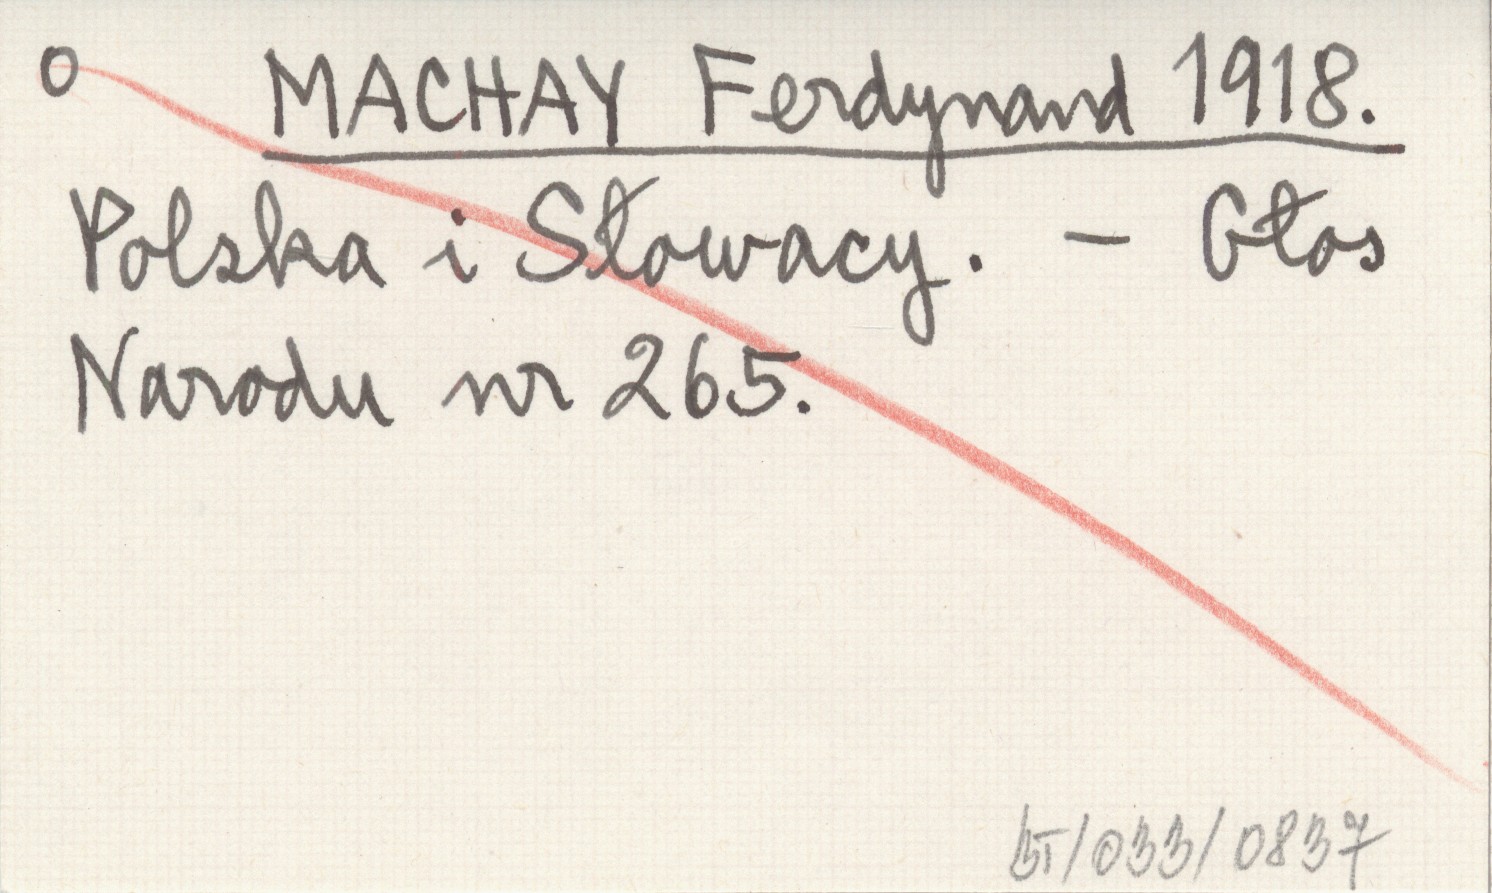 O MACHAY Ferdynand 1918.
Polska i Słowacy. - Głos
Narodu nr 265.
BT/033/0837